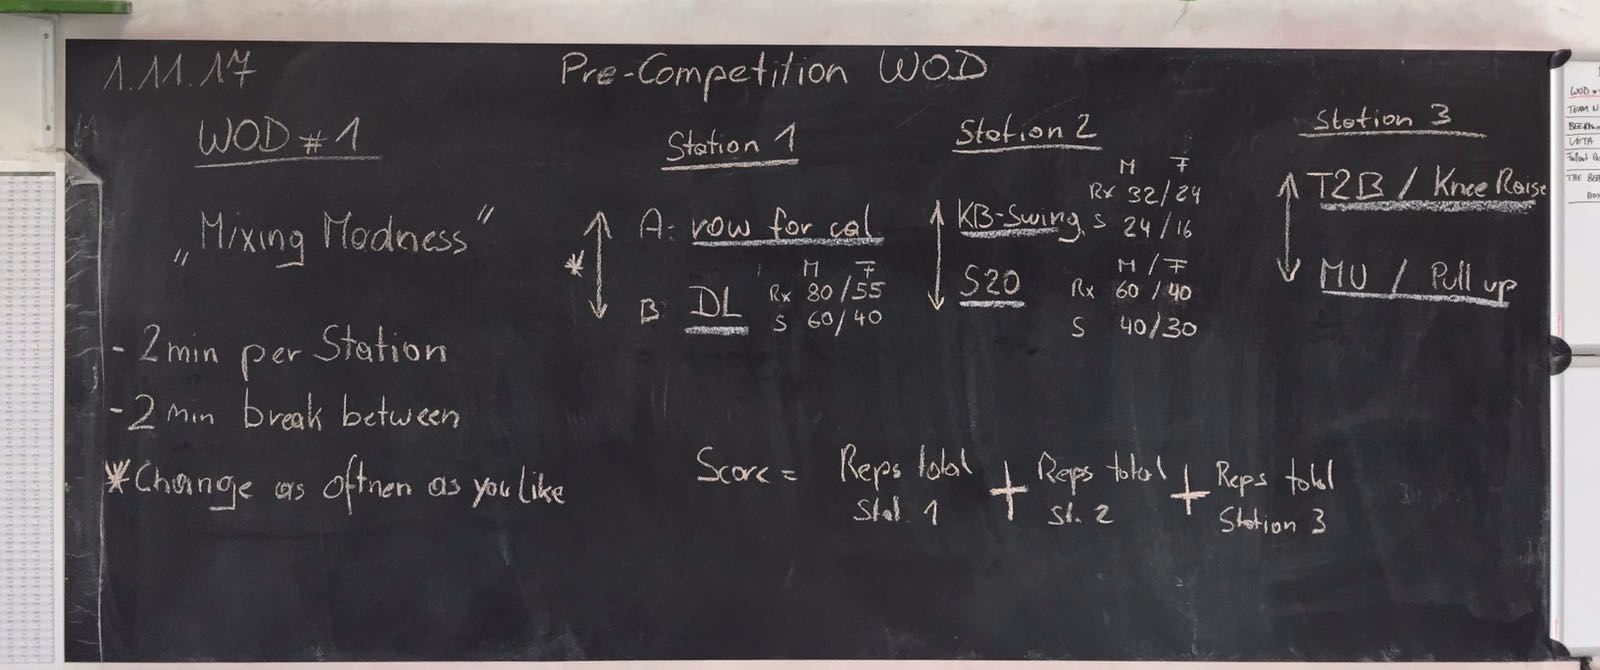 1.11.17
Pre-Competition WOD
WOD #1
„Mixing Madness“
- 2 min per Station
- 2 min break between
*Change as oftnen as you like
Station 1
A: row for cal
*
M F
B: DL Rx 80/55
S 60/40
Station 2
M F
Rx 32/24
KB-Swing S 24/16
M / F
S2O Rx 60/40
S 40/30
Station 3
T2B / Knee Raise
MU / Pull up
Score = Reps total + Reps total + Reps total
Stat. 1 St. 2 Station 3
WOD
TEAM N
THE BEA